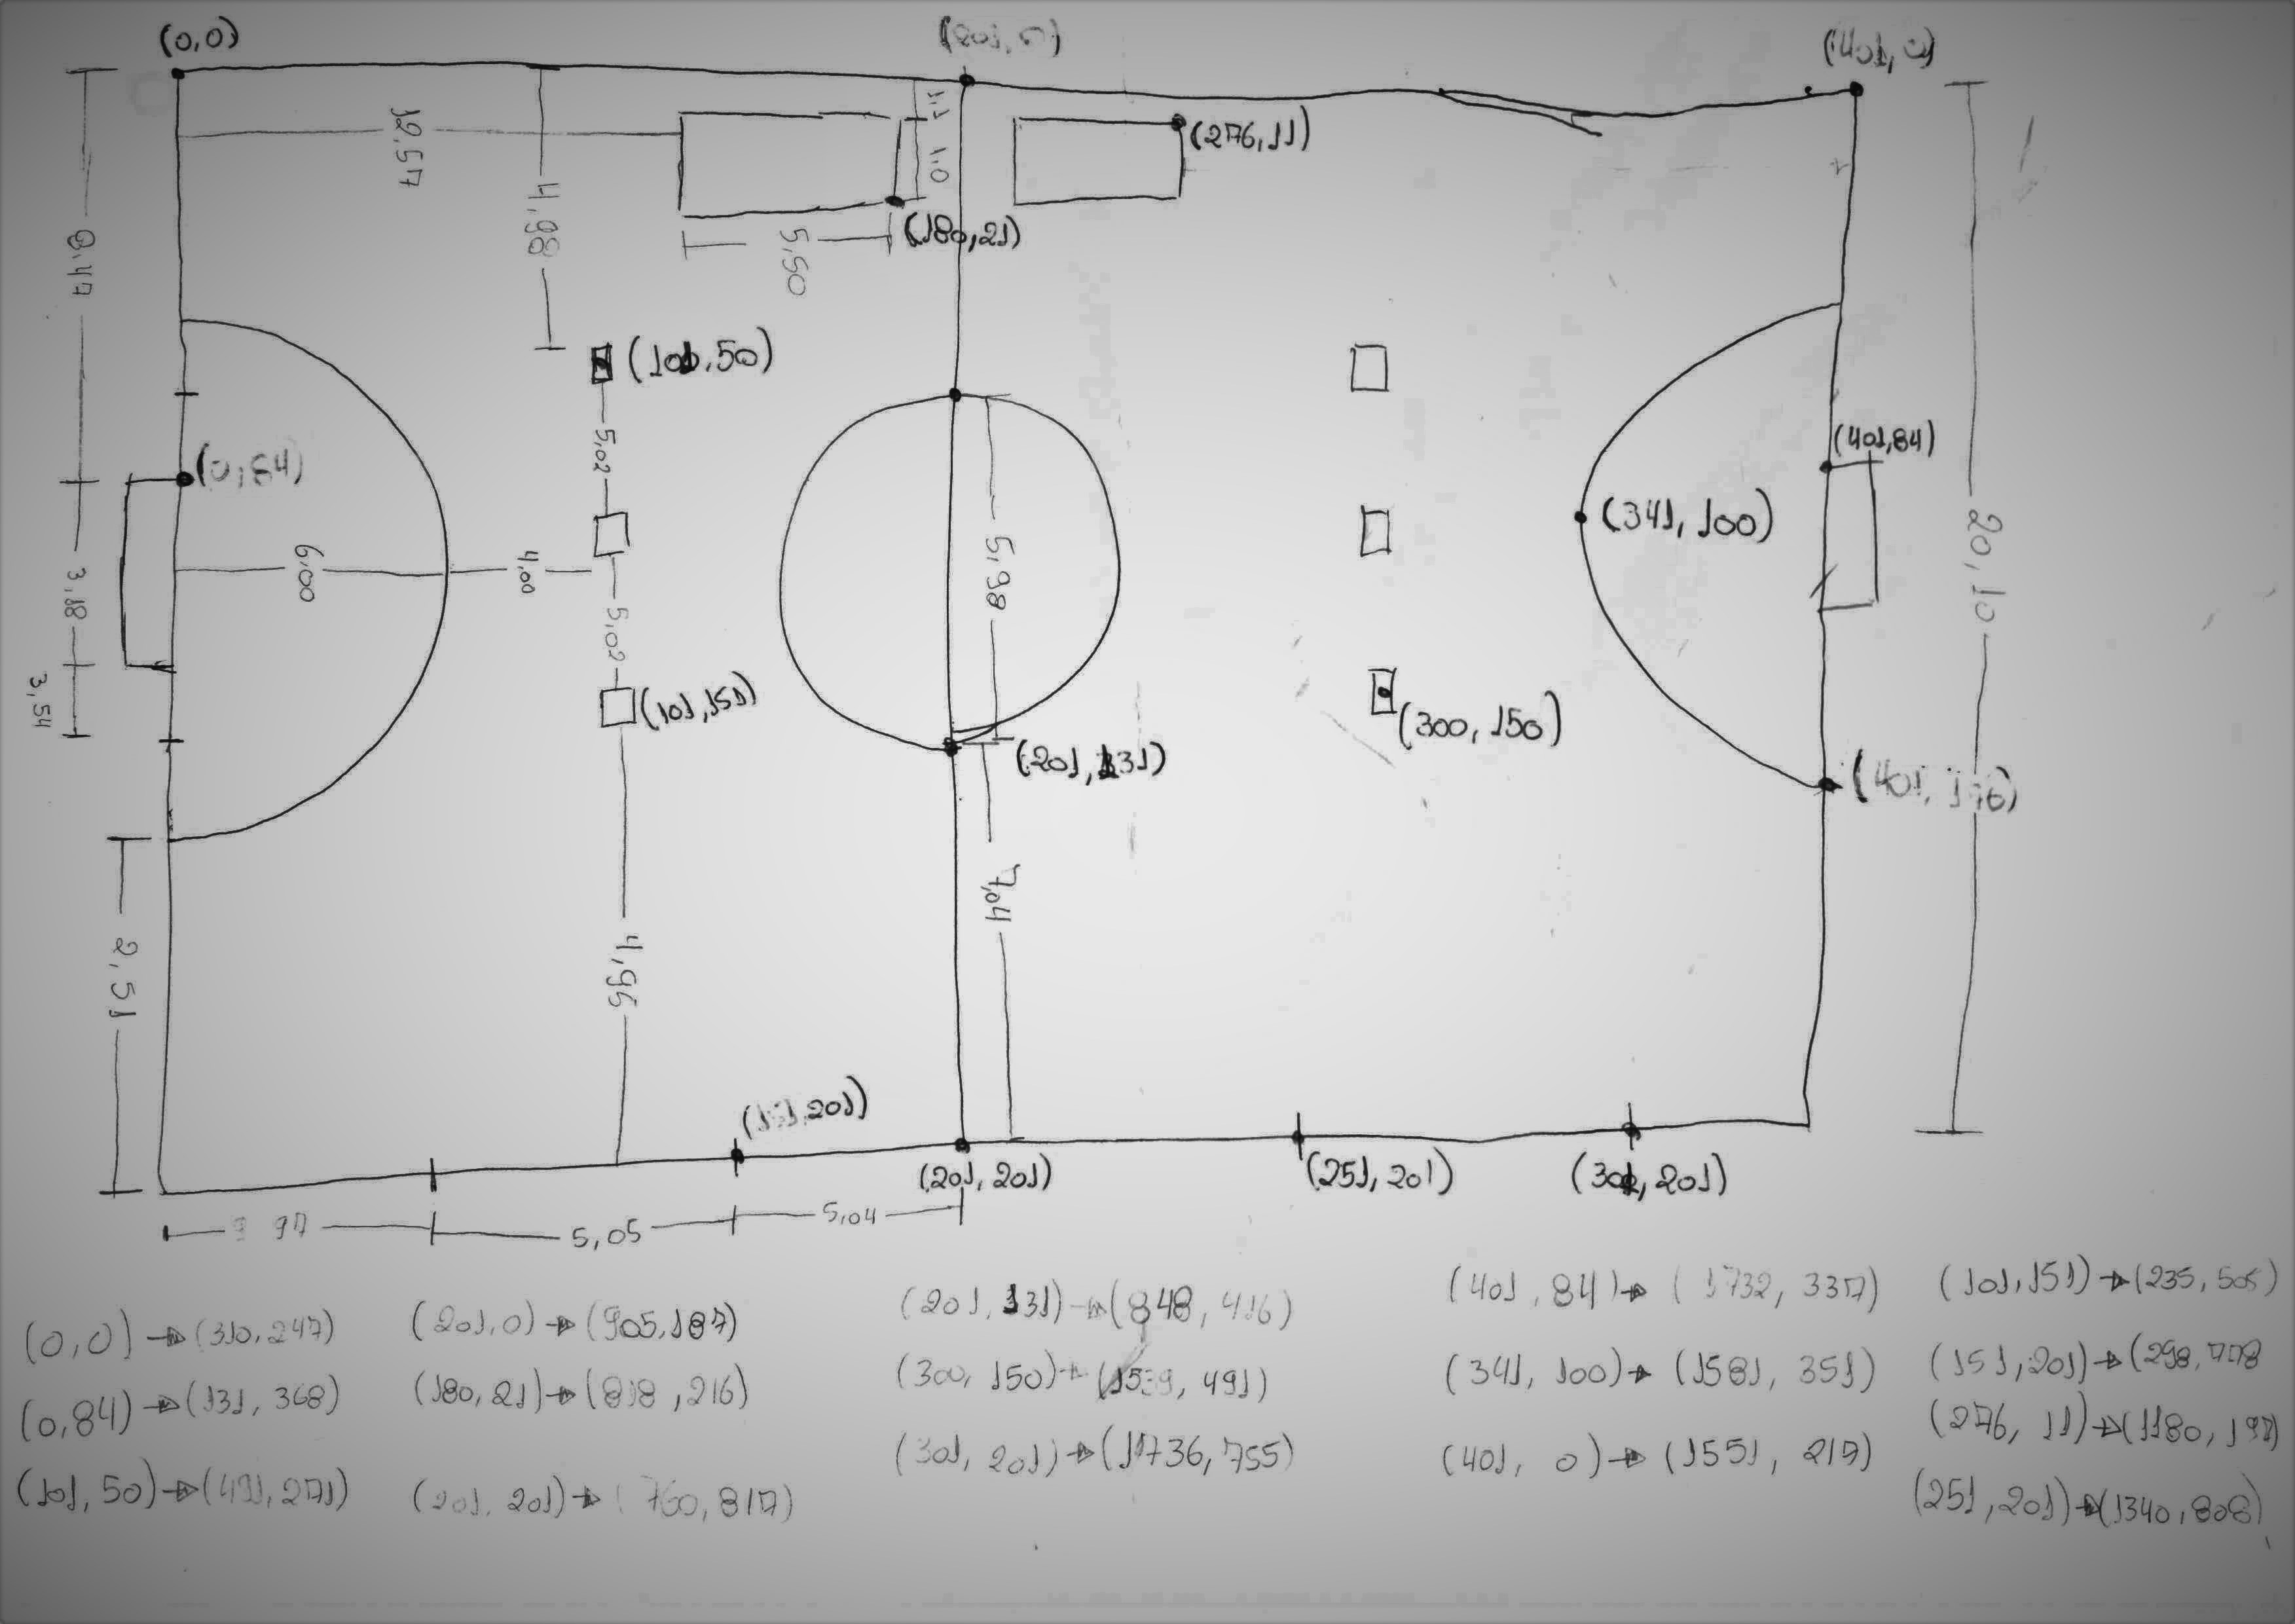 (0,0)
(201,0)
(401,0)
12,57
4,98
1,1
1,0
(276,11)
(180,21)
5,50
8,47
(101,50)
5,02
(0,84)
(401,84)
5,98
(341,100)
20,10
6,00
4,00
3,18
5,02
3,54
(101,151)
(300,150)
(201,131)
7,04
2,51
4,96
(201,201)
(251,201)
(301,201)
5,05
5,04
(0,0) → (310,247)
(0,84) → (131,368)
(101,50) → (491,271)
(201,0) → (905,187)
(180,21) → (818,216)
(201,201) → (760,817)
(201,131) → (848,416)
(300,150) → 491)
(301,201) → (1736,755)
(401,84) → (1732,337)
(341,100) → (1581,351)
(401,0) → (1551,217)
(101,151) → (235,505)
(151,201) → (298,778
(276,11) → (1180,197)
(251,201) → (1340,808)